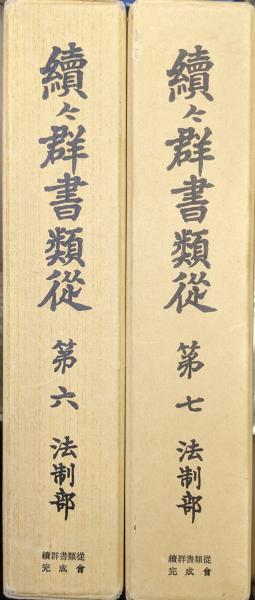 續々群書類從 第六 法制部
續群書類從
完成會
續々群書類從 第七 法制部
續群書類從
完成會